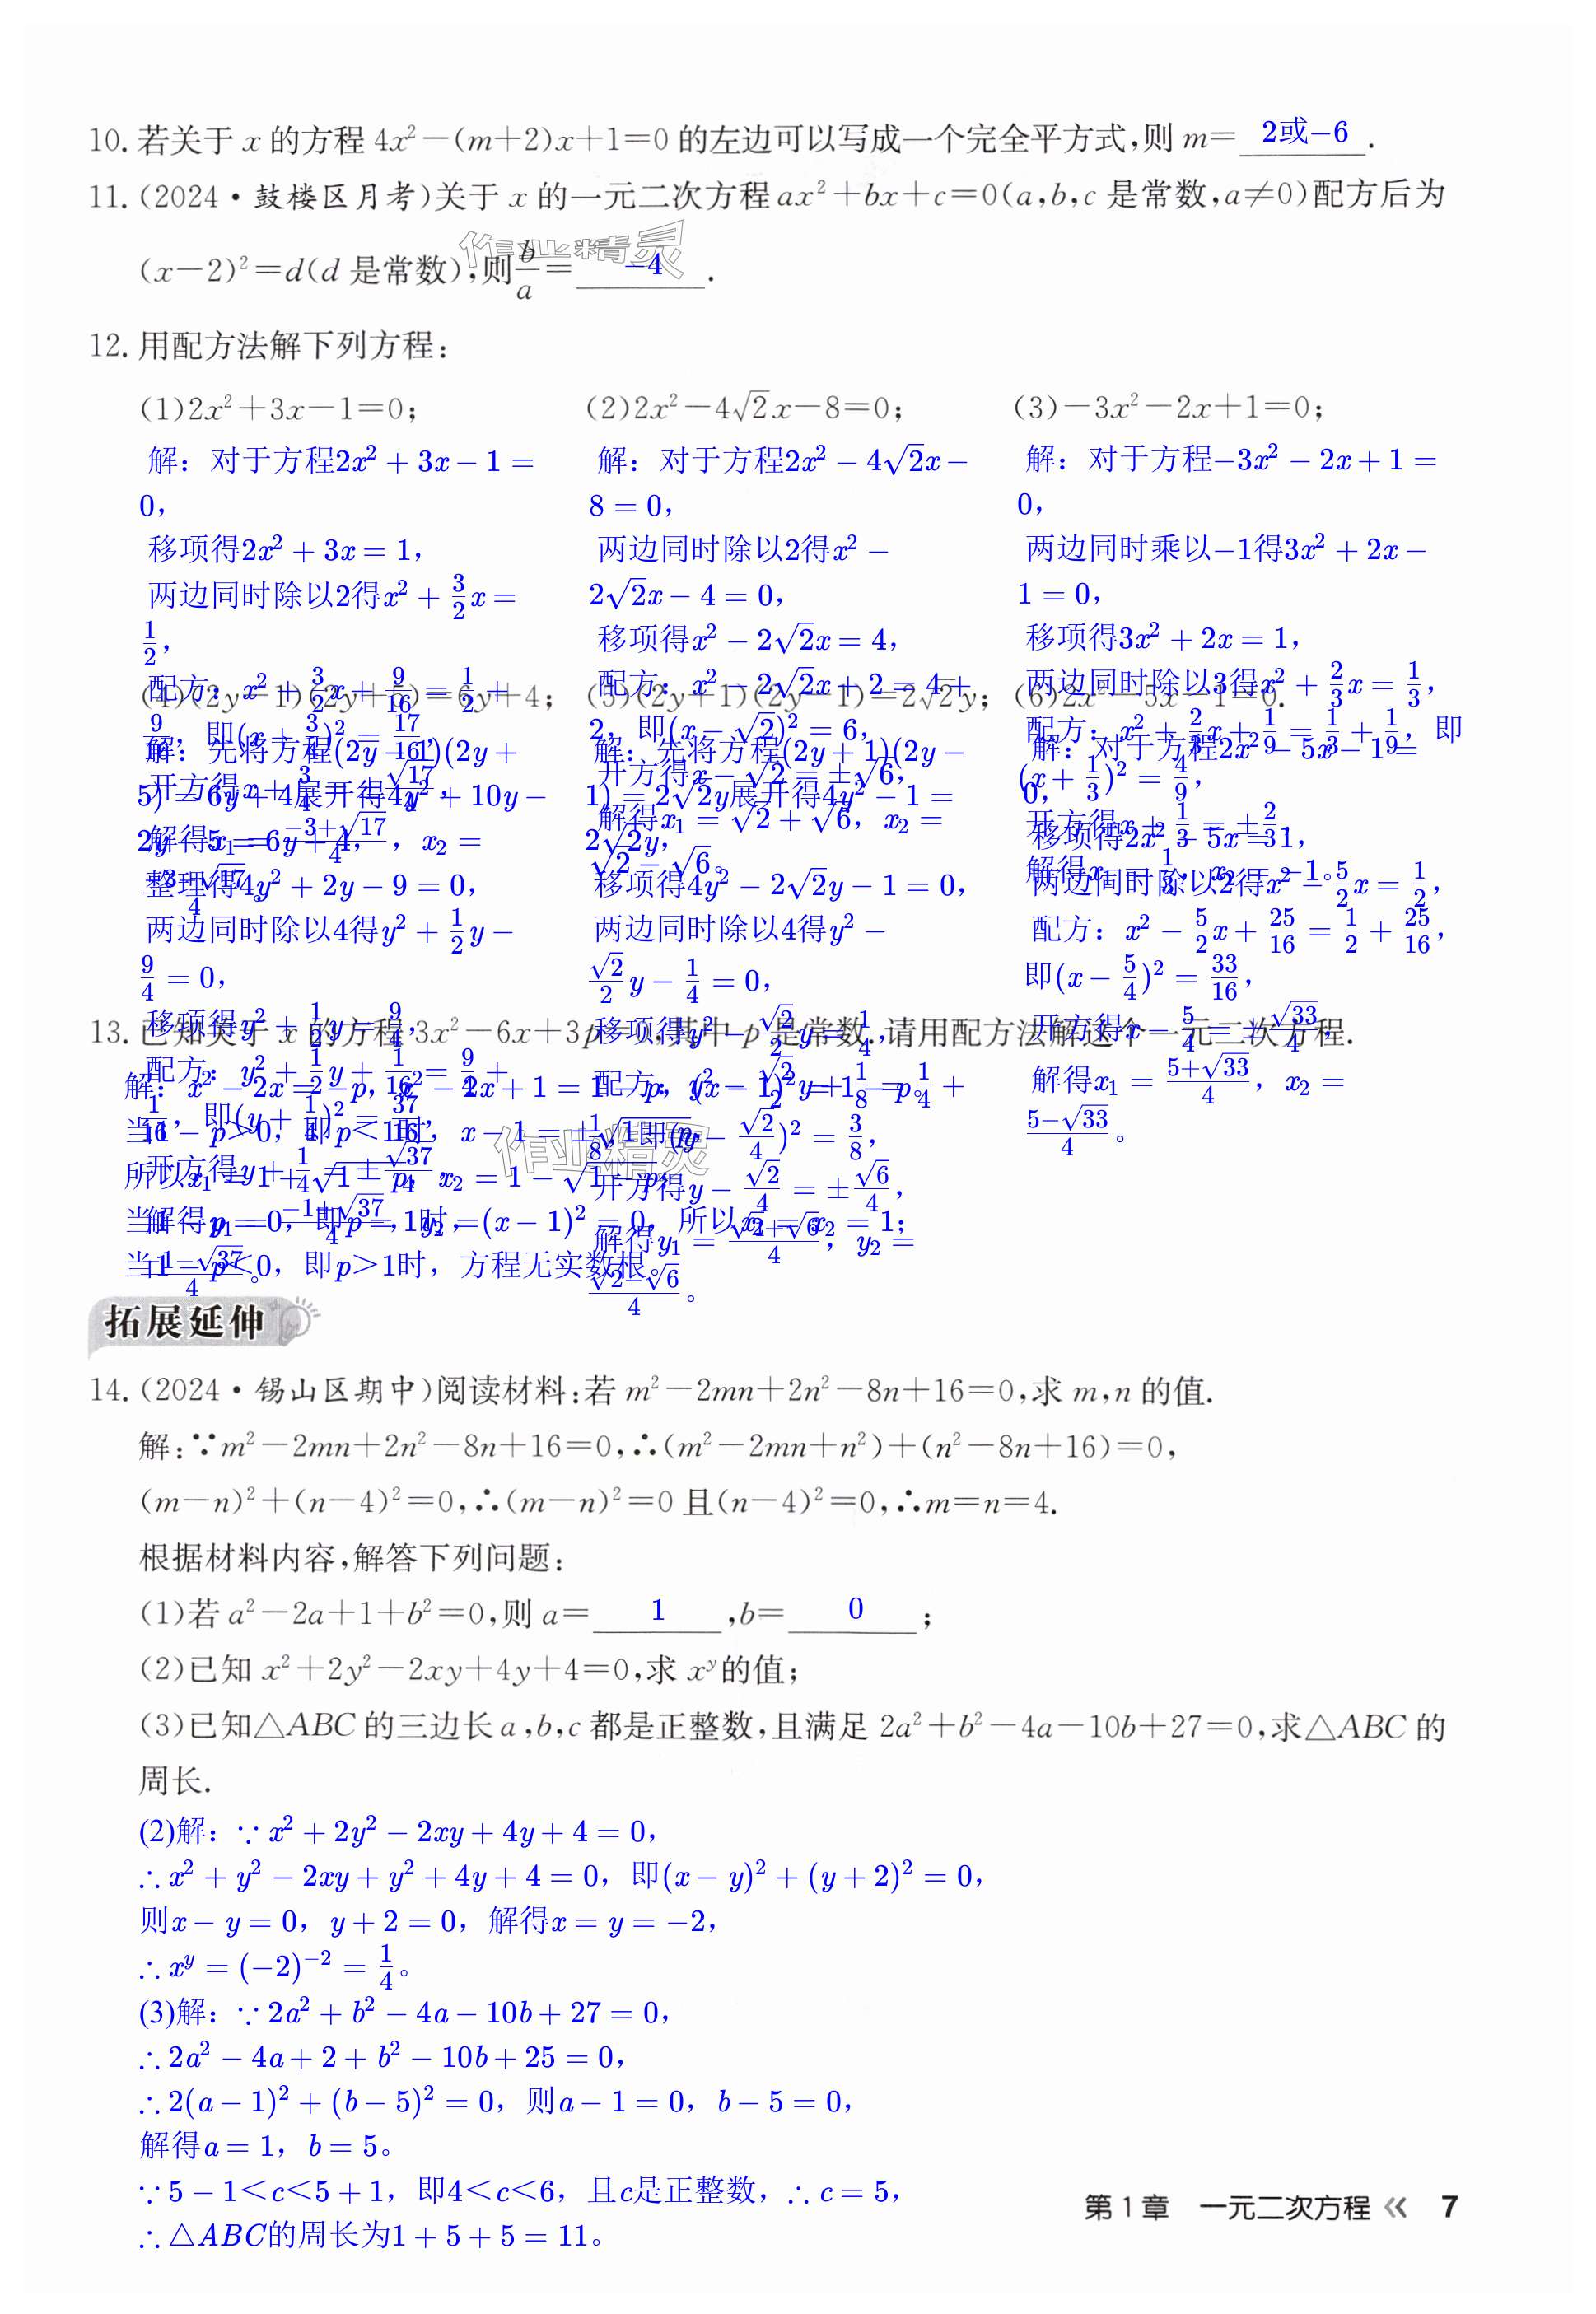 10. 若关于 x 的方程 4x²−(m+2)x+1=0 的左边可以写成一个完全平方式,则 m= 2或−6 .
11. (2024·鼓楼区月考)关于 x 的一元二次方程 ax²+bx+c=0(a,b,c 是常数,a≠0)配方后为
(x−2)²=d(d 是常数),则b/a= −4 .
作业精灵
12. 用配方法解下列方程:
(1)2x²+3x−1=0;
解：对于方程2x² + 3x − 1 =
0，
移项得2x² + 3x = 1，
两边同时除以2得x² + 3/2x =
1/2，
配方：x² + 3/2x + 9/16 = 1/2 +
9/16，即(x + 3/4)² = 17/16，
(2)2x²−4√2x−8=0;
解：对于方程2x² − 4√2x −
8 = 0，
两边同时除以2得x² −
2√2x − 4 = 0，
移项得x² − 2√2x = 4，
配方：x² − 2√2x + 2 = 4 +
2，即(x − √2)² = 6，
开方得x − √2 = ±√6，
解得x₁ = √2 + √6，x₂ =
√2 − √6。
(3)−3x²−2x+1=0;
解：对于方程−3x² − 2x + 1 =
0，
两边同时乘以−1得3x² + 2x −
1 = 0，
移项得3x² + 2x = 1，
两边同时除以3得x² + 2/3x = 1/3，
配方：x² + 2/3x + 1/9 = 1/3 + 1/9，即
(x + 1/3)² = 4/9，
(4)(2y−1)(2y+5)=6y+4;
解：先将方程(2y − 1)(2y +
5) = 6y + 4展开得4y² + 10y −
2y − 5 = 6y + 4，
整理得4y² + 2y − 9 = 0，
两边同时除以4得y² + 1/2y −
9/4 = 0，
移项得y² + 1/2y = 9/4，
配方：y² + 1/2y + 1/16 = 9/4 +
1/16，即(y + 1/4)² = 37/16，
(5)(2y+1)(2y−1)=2√2y;
解：先将方程(2y + 1)(2y −
1) = 2√2y展开得4y² − 1 =
2√2y，
移项得4y² − 2√2y − 1 = 0，
两边同时除以4得y² −
√2/2y − 1/4 = 0，
移项得y² − √2/2y = 1/4，
开方得y − √2/4 = ±√6/4，
解得y₁ = √2+√6/4，y₂ =
√2−√6/4。
(6)2x²−5x−1=0.
解：对于方程2x² − 5x − 1 =
0，
移项得2x² − 5x = 1，
两边同时除以2得x² − 5/2x = 1/2，
配方：x² − 5/2x + 25/16 = 1/2 + 25/16，
即(x − 5/4)² = 33/16，
开方得x − 5/4 = ±√33/4，
解得x₁ = 5+√33/4，x₂ =
5−√33/4。
13. 已知关于 x 的方程 3x²−6x+3p=0,其中 p 是常数.请用配方法解这个一元二次方程.
解：x² − 2x = −p，x² − 2x + 1 = 1 − p，(x − 1)² = 1 − p。
当1 − p＞0，即p＜1时，x − 1 = ±√1 − p，
所以x₁ = 1 + √1 − p，x₂ = 1 − √1 − p；
当1 − p = 0，即p = 1时，(x − 1)² = 0，所以x₁ = x₂ = 1；
当1 − p＜0，即p＞1时，方程无实数根。
作业精灵
拓展延伸
14. (2024·锡山区期中)阅读材料:若 m²−2mn+2n²−8n+16=0,求 m,n 的值.
解:∵m²−2mn+2n²−8n+16=0,∴(m²−2mn+n²)+(n²−8n+16)=0,
(m−n)²+(n−4)²=0,∴(m−n)²=0 且(n−4)²=0,∴m=n=4.
根据材料内容,解答下列问题:
(1)若 a²−2a+1+b²=0,则 a= 1 ,b= 0 ;
(2)已知 x²+2y²−2xy+4y+4=0,求 xʸ的值;
(3)已知△ABC 的三边长 a,b,c 都是正整数,且满足 2a²+b²−4a−10b+27=0,求△ABC 的
周长.
(2)解：∵ x² + 2y² − 2xy + 4y + 4 = 0，
∴ x² + y² − 2xy + y² + 4y + 4 = 0，即(x − y)² + (y + 2)² = 0，
则x − y = 0，y + 2 = 0，解得x = y = −2，
∴ xʸ = (−2)⁻² = 1/4。
(3)解：∵ 2a² + b² − 4a − 10b + 27 = 0，
∴ 2a² − 4a + 2 + b² − 10b + 25 = 0，
∴ 2(a − 1)² + (b − 5)² = 0，则a − 1 = 0，b − 5 = 0，
解得a = 1，b = 5。
∵ 5 − 1＜c＜5 + 1，即4＜c＜6，且c是正整数，∴ c = 5，
∴ △ABC的周长为1 + 5 + 5 = 11。
第1章 一元二次方程 « 7